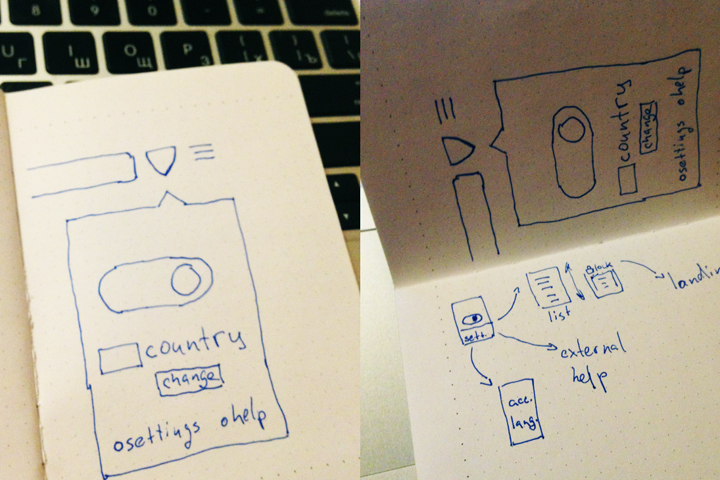 8
9
0
U
Г
І
Ш
О
Щ
Р
З
Ъ
country
change
settings
help
country
change
settings
help
sett.
list
Block
external
help
acc.
lang.